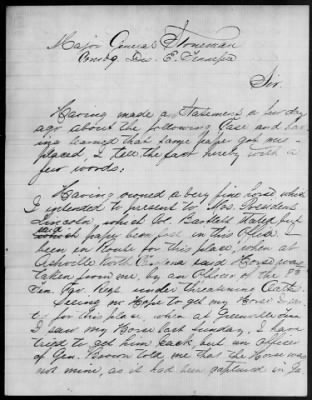 Major General Stoneman
Comdg. Dis. E. Tennessee
Sir.
Having made a Statement a few days
ago about the following Case and hav-
ing learned that same paper got mis-
placed, I tell the fact merely with a
few words:
Having owned a very fine horse which
I intended to present to Mrs. President
Lincoln, which Col. Bartlett stated
said
which paper been lost in this Office. I
been in Route for this place, when at
Ashville North Carolina said Horse was
taken from me, by an Officer of the 8th
Ten. Cav. Regt. under threatening Oaths.
Seeing no Hope to get my Horse I
for this place, when at Greenville Tenn
I saw my Horse last Sunday. I have
tried to got him back, but an officer
of Gen. Brown told me that the Horse was
not mine, as it had been captured in Ga